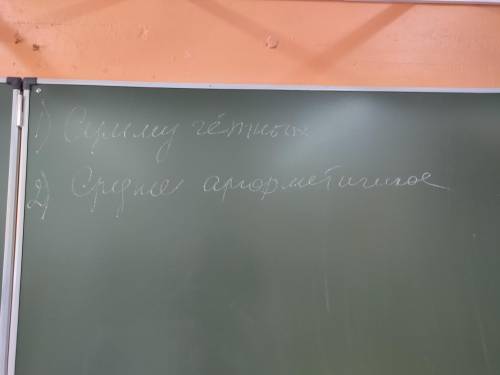 1) Сумму чётных
2) Среднее арифметическое